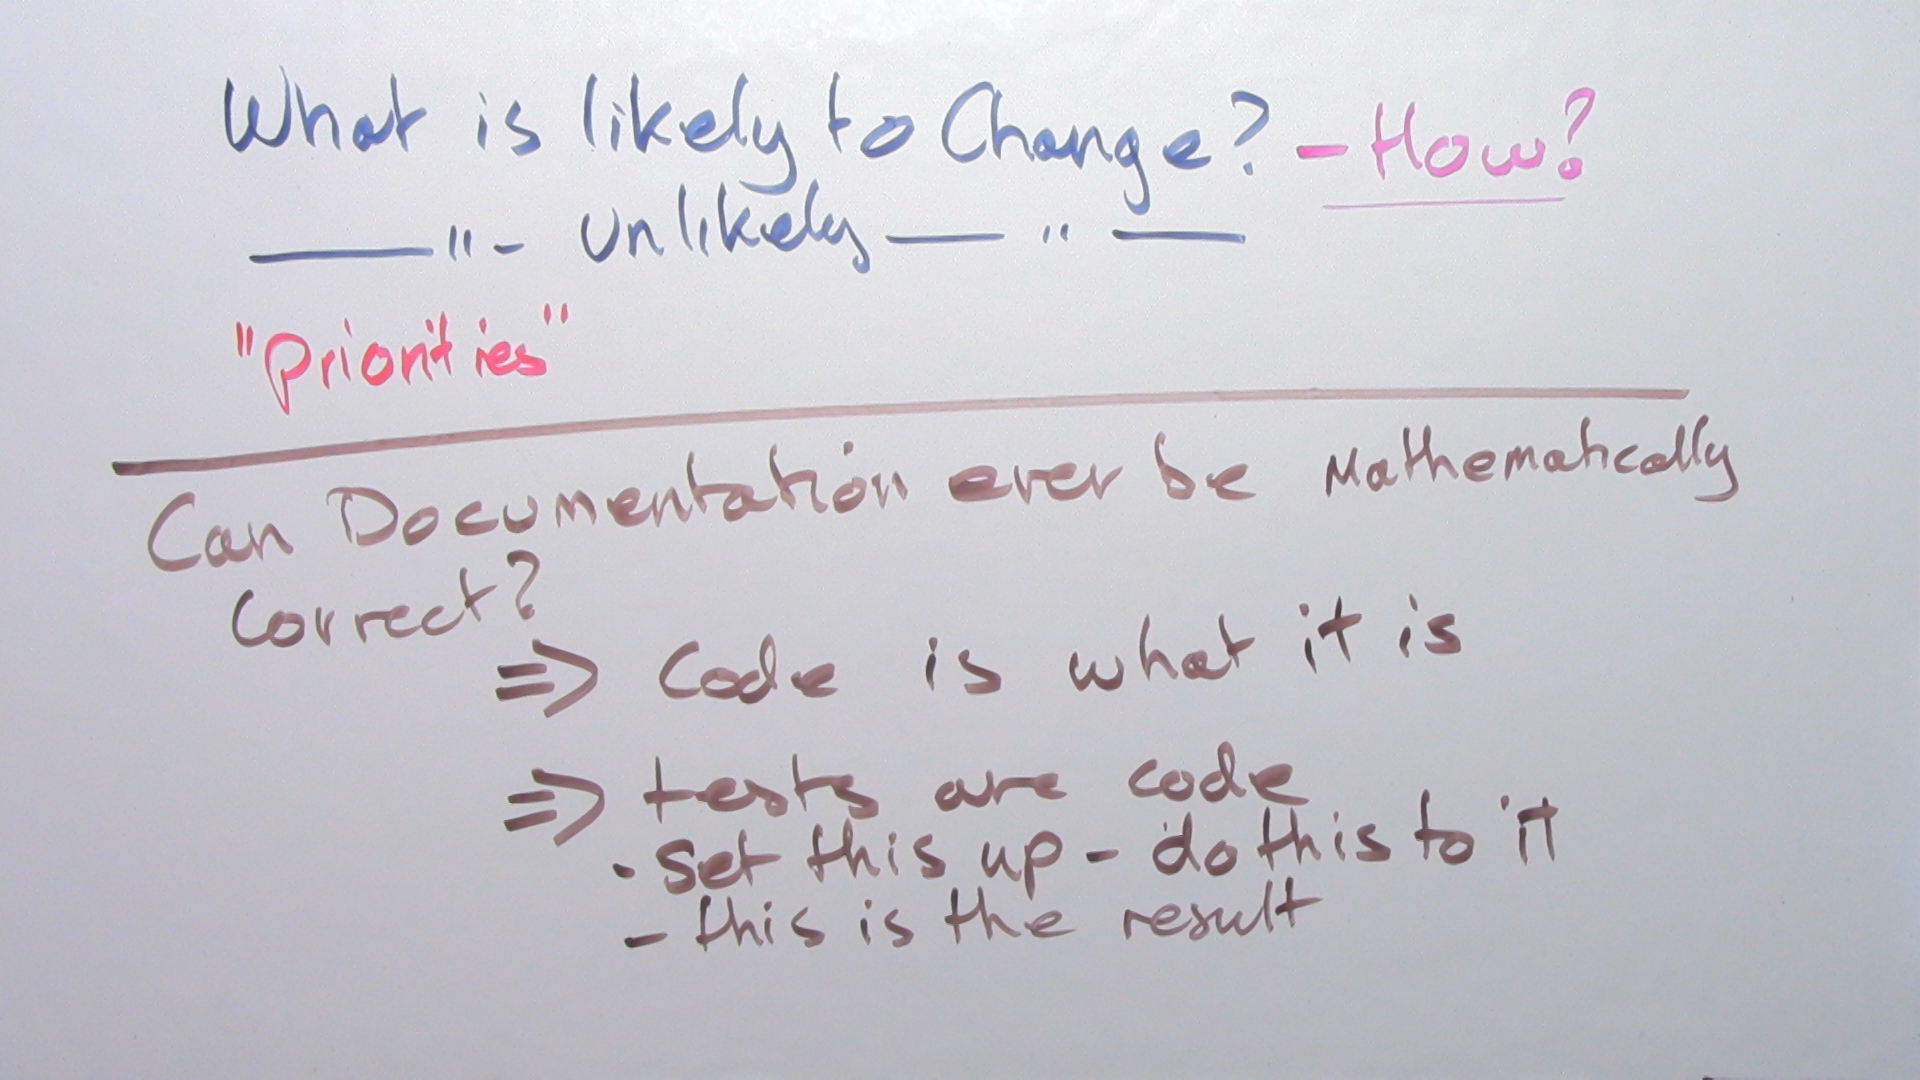 What is likely to Change? - How?
—"- unlikely — " —
"Priorities"
Can Documentation ever be Mathematically
Correct?
=> Code is what it is
=> tests are code
- Set this up - do this to it
- this is the result